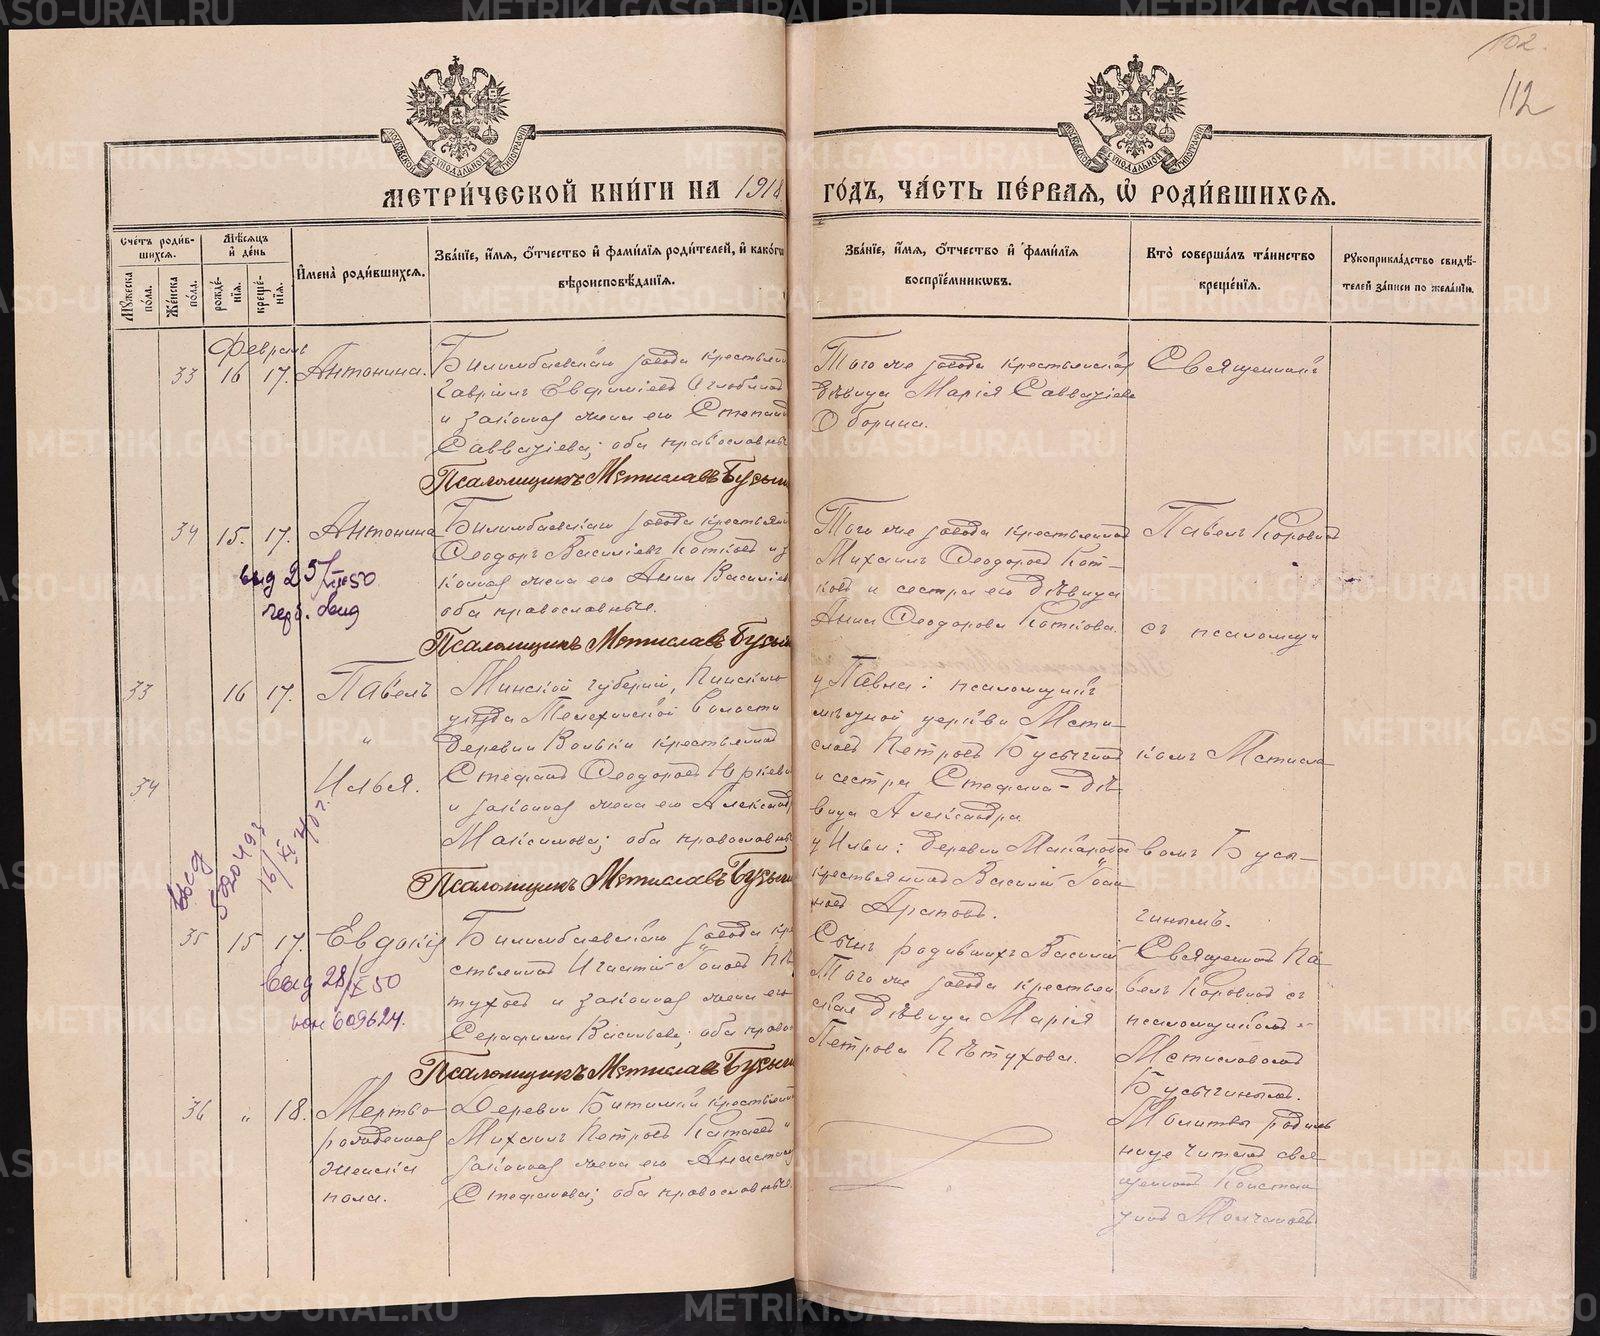 102.
112
МЕТРИ́ЧЕСКОЙ КНИ́ГИ НА 1918
ГО́ДЪ, ЧА́СТЬ ПЕ́РВАЯ, Ѡ РОДИ́ВШИХСЯ.
Сче́тъ роди́в-
шихся.
Мѣ́сяцъ
и де́нь
Мꙋ́жеска по́ла.
Же́нска по́ла.
рожде́-
нїя.
креще́-
нїя.
Имена̀ роди́вшихся.
Зва́нїе, и́мя, о́тчество и фами́лїя роди́телей, и како́гѡ
вѣроисповѣ́данїя.
Зва́нїе, и́мя, о́тчество и фами́лїя
воспрїе́мникѡвъ.
Кто̀ соверша́лъ та́инство
креще́нїя.
Рꙋкоприкла́дство свидѣ́-
телей за́писи по жела́нїю.
Февраль
33 16 17. Антонина.
Билимбаевскаго завода крестьянин
Гавріилъ Евфиміевъ
и законная жена его Степанида
Савватіева; оба православные
Псаломщикъ Мстиславъ Бусыгин
Того же завода крестьянская
дѣвица Марія Савватіева
Оборина.
Священникъ
34 15. 17. Антонина
Билимбаевскаго завода крестьянин
Ѳеодоръ Василіевъ Котковъ и за
конная жена его Анна Василіева
оба православные.
Псаломщикъ Мстиславъ Бусыгин
выд 25/ 50.
выд
Того же завода крестьянинъ
Михаилъ Ѳеодоровъ Кот-
ковъ и сестра его дѣвица
Анна Ѳеодорова Коткова.
Павелъ Коровинъ
съ псаломщи
33 16 17. Павелъ
Минской губерніи, Пинскаго
уѣзда Телеханской волости
деревни Вольки крестьянинъ
34 " Илья.
Стефанъ Ѳеодоровъ Юркеви
и законная жена его Александра
Максимова; оба православные
Псаломщикъ Мстиславъ Бусыгин
выд
520493
16/XI 40 г.
у Павла: псаломщикъ
мѣстной церкви Мсти-
славъ Петровъ Бусыгинъ
и сестра Стефана - дѣ-
вица Александра
у Ильи: деревни Макарова
крестьянинъ Василій Іоан-
новъ Араповъ.
комъ Мстисла-
вомъ Бусы-
гинымъ.
35 15 17. Евдокія
Билимбаевскаго завода кре
стьянинъ Игнатій Іоновъ Пѣ
туховъ и законная жена его
Серафима Васильева; оба право
Псаломщикъ Мстиславъ Бусыгин
выд 28/X 50
609624.
Сынъ родившихъ Василій
Того же завода крестьян
ская дѣвица Марія
Петрова Пѣтухова.
Священникъ Па-
велъ Коровинъ съ
псаломщикомъ
Мстиславомъ
Бусыгинымъ.
36 " 18. Мертво-
рожденная
женска
пола.
Деревни Битимки крестьянинъ
Михаилъ Петровъ Катаевъ и
законная жена его Анастасія
Стефанова; оба православные.
Молитвы родиль
нице читалъ свя-
щенникъ Констан
тинъ Молчановъ